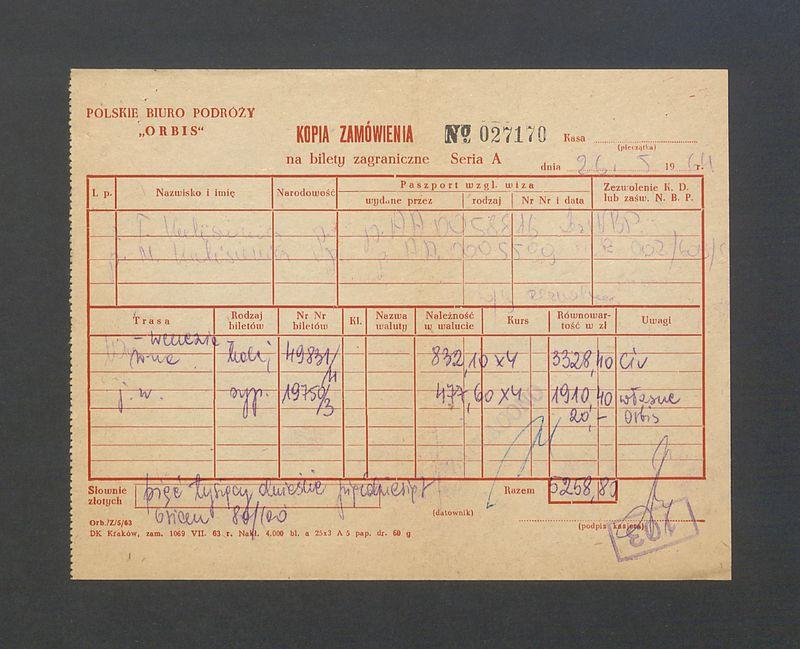 POLSKIE BIURO PODRÓŻY
„ORBIS"
KOPJA ZAMÓWIENIA
№ 027170
Kasa
(pieczątka)
na bilety zagraniczne Seria A
dnia 26. 5 1964 r.
L p. Nazwisko i imię Narodowość Paszport wzgl. wiza Zezwolenie K. D. lub zaśw. N. B. P.
wydane przez rodzaj Nr Nr i data
T.
M.
Trasa Rodzaj biletów Nr Nr biletów Kl. Nazwa waluty Należność w walucie Kurs Równowartość w zł Uwagi
W-wa - Wenecja kolej 49831/4 832,10 x4 3328,40 CIV
j.w. syp. 19750/3 477,60 x4 1910,40 własne
20,- Orbis
Słownie złotych pięć tysięcy dwieście pięćdziesiąt
osiem 80/100
Razem 5258,80
(datownik)
(podpis kasjera)
103
Orb./Z/5/63
DK Kraków, zam. 1069 VII. 63 r. Nakł. 4.000 bl. a 25x3 A 5 pap. dr. 60 g